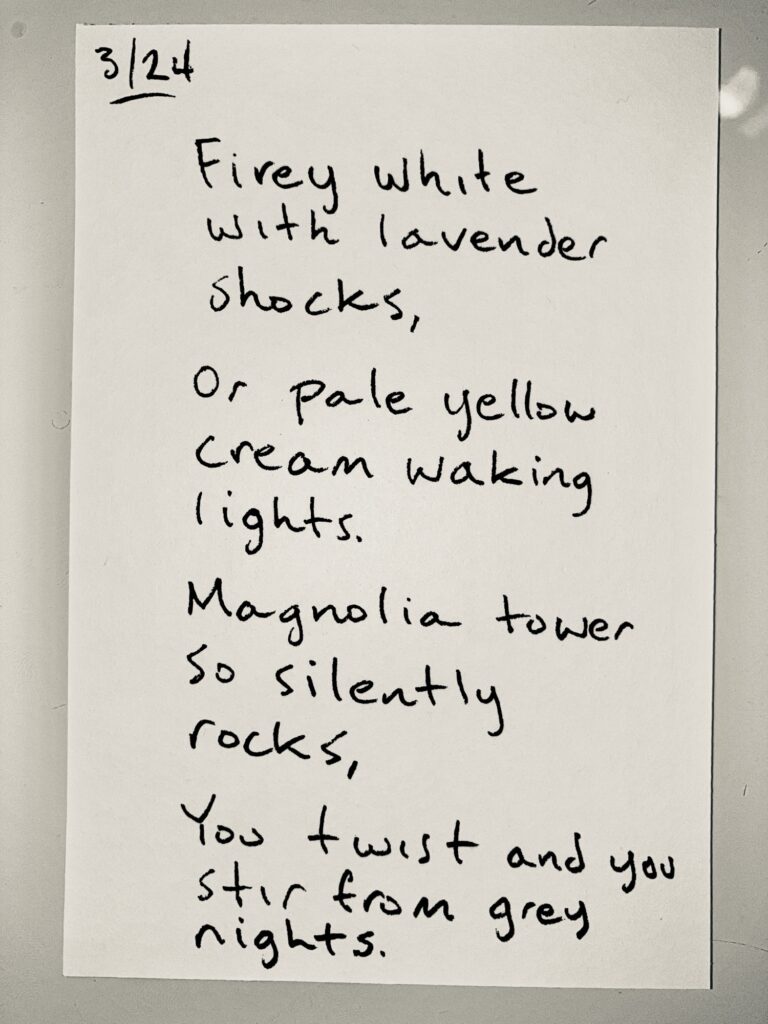 3/24
Firey white
with lavender
shocks,
Or pale yellow
cream waking
lights.
Magnolia tower
so silently
rocks,
You twist and you
stir from grey
nights.